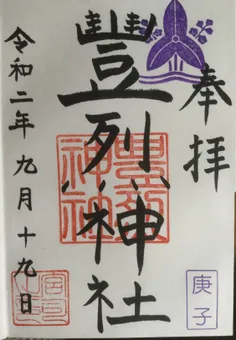 奉拝
豐烈神社
令和二年九月十九日
庚子
豐烈
神社